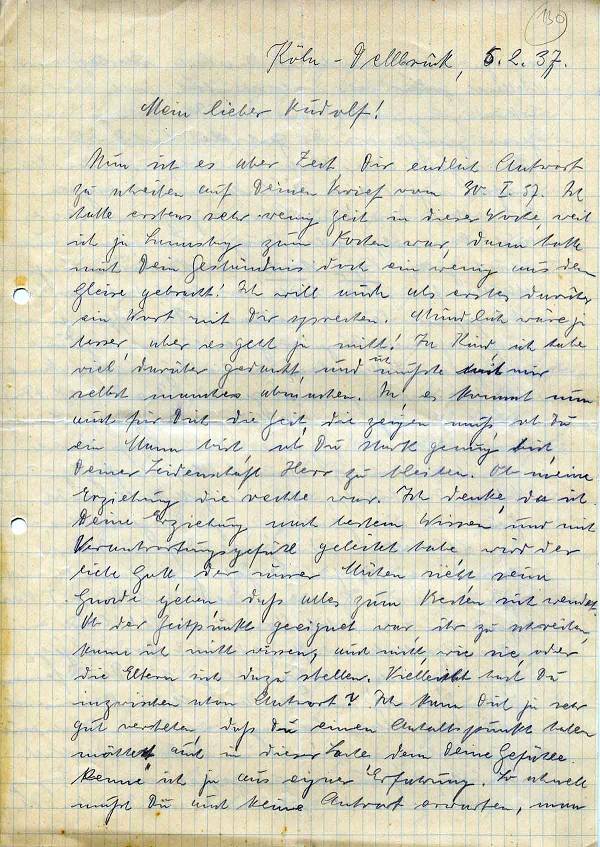 130
Köln - Dellbrück, 5.2.37.
Mein lieber Rudolf!
Nun ist es aber Zeit, Dir endlich Antwort
zu schreiben auf Deinen Brief vom 30. I. 37. Ich
hatte erstens sehr wenig Zeit in dieser Woche, weil
ich ja zum Kochen war, dann hatte
mich Dein Geständnis doch ein wenig aus dem
Gleise gebracht! Ich will auch als erstes darüber
ein Wort mit Dir sprechen. Mündlich wäre ja
besser, aber es geht ja nicht! Ja Kind, ich habe
viel darüber gedacht, und ich mußte mir
selbst manches abbitten. Ja es kommt nun
auch für Dich die Zeit, die zeigen muß, ob Du
ein Mann bist, ob Du stark genug bist
Deiner Leidenschaft Herr zu bleiben. Ob meine
Erziehung die rechte war. Ich denke, da ich
Deine Erziehung nach bestem Wissen und mit
Verantwortungsgefühl geleitet habe, wird der
liebe Gott, der unser Mühen sieht seine
Gnade geben, daß alles zum Besten sich wendet.
Ob der Zeitpunkt geeignet war, ihr zu schreiben,
kann ich nicht wissen, auch nicht, wie sie oder
die Eltern sich dazu stellen. Vielleicht hast Du
inzwischen schon Antwort? Ich kann Dich ja sehr
gut verstehen, daß Du einen Anhaltspunkt haben
möchtest auch in dieser Sache, denn Deine Gefühle
kenne ich ja aus eigner Erfahrung. So schnell
mußt Du auch keine Antwort erwarten, man